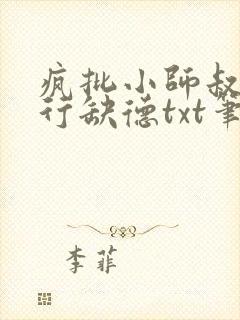 疯批小师叔
行缺德txt笔
李菲